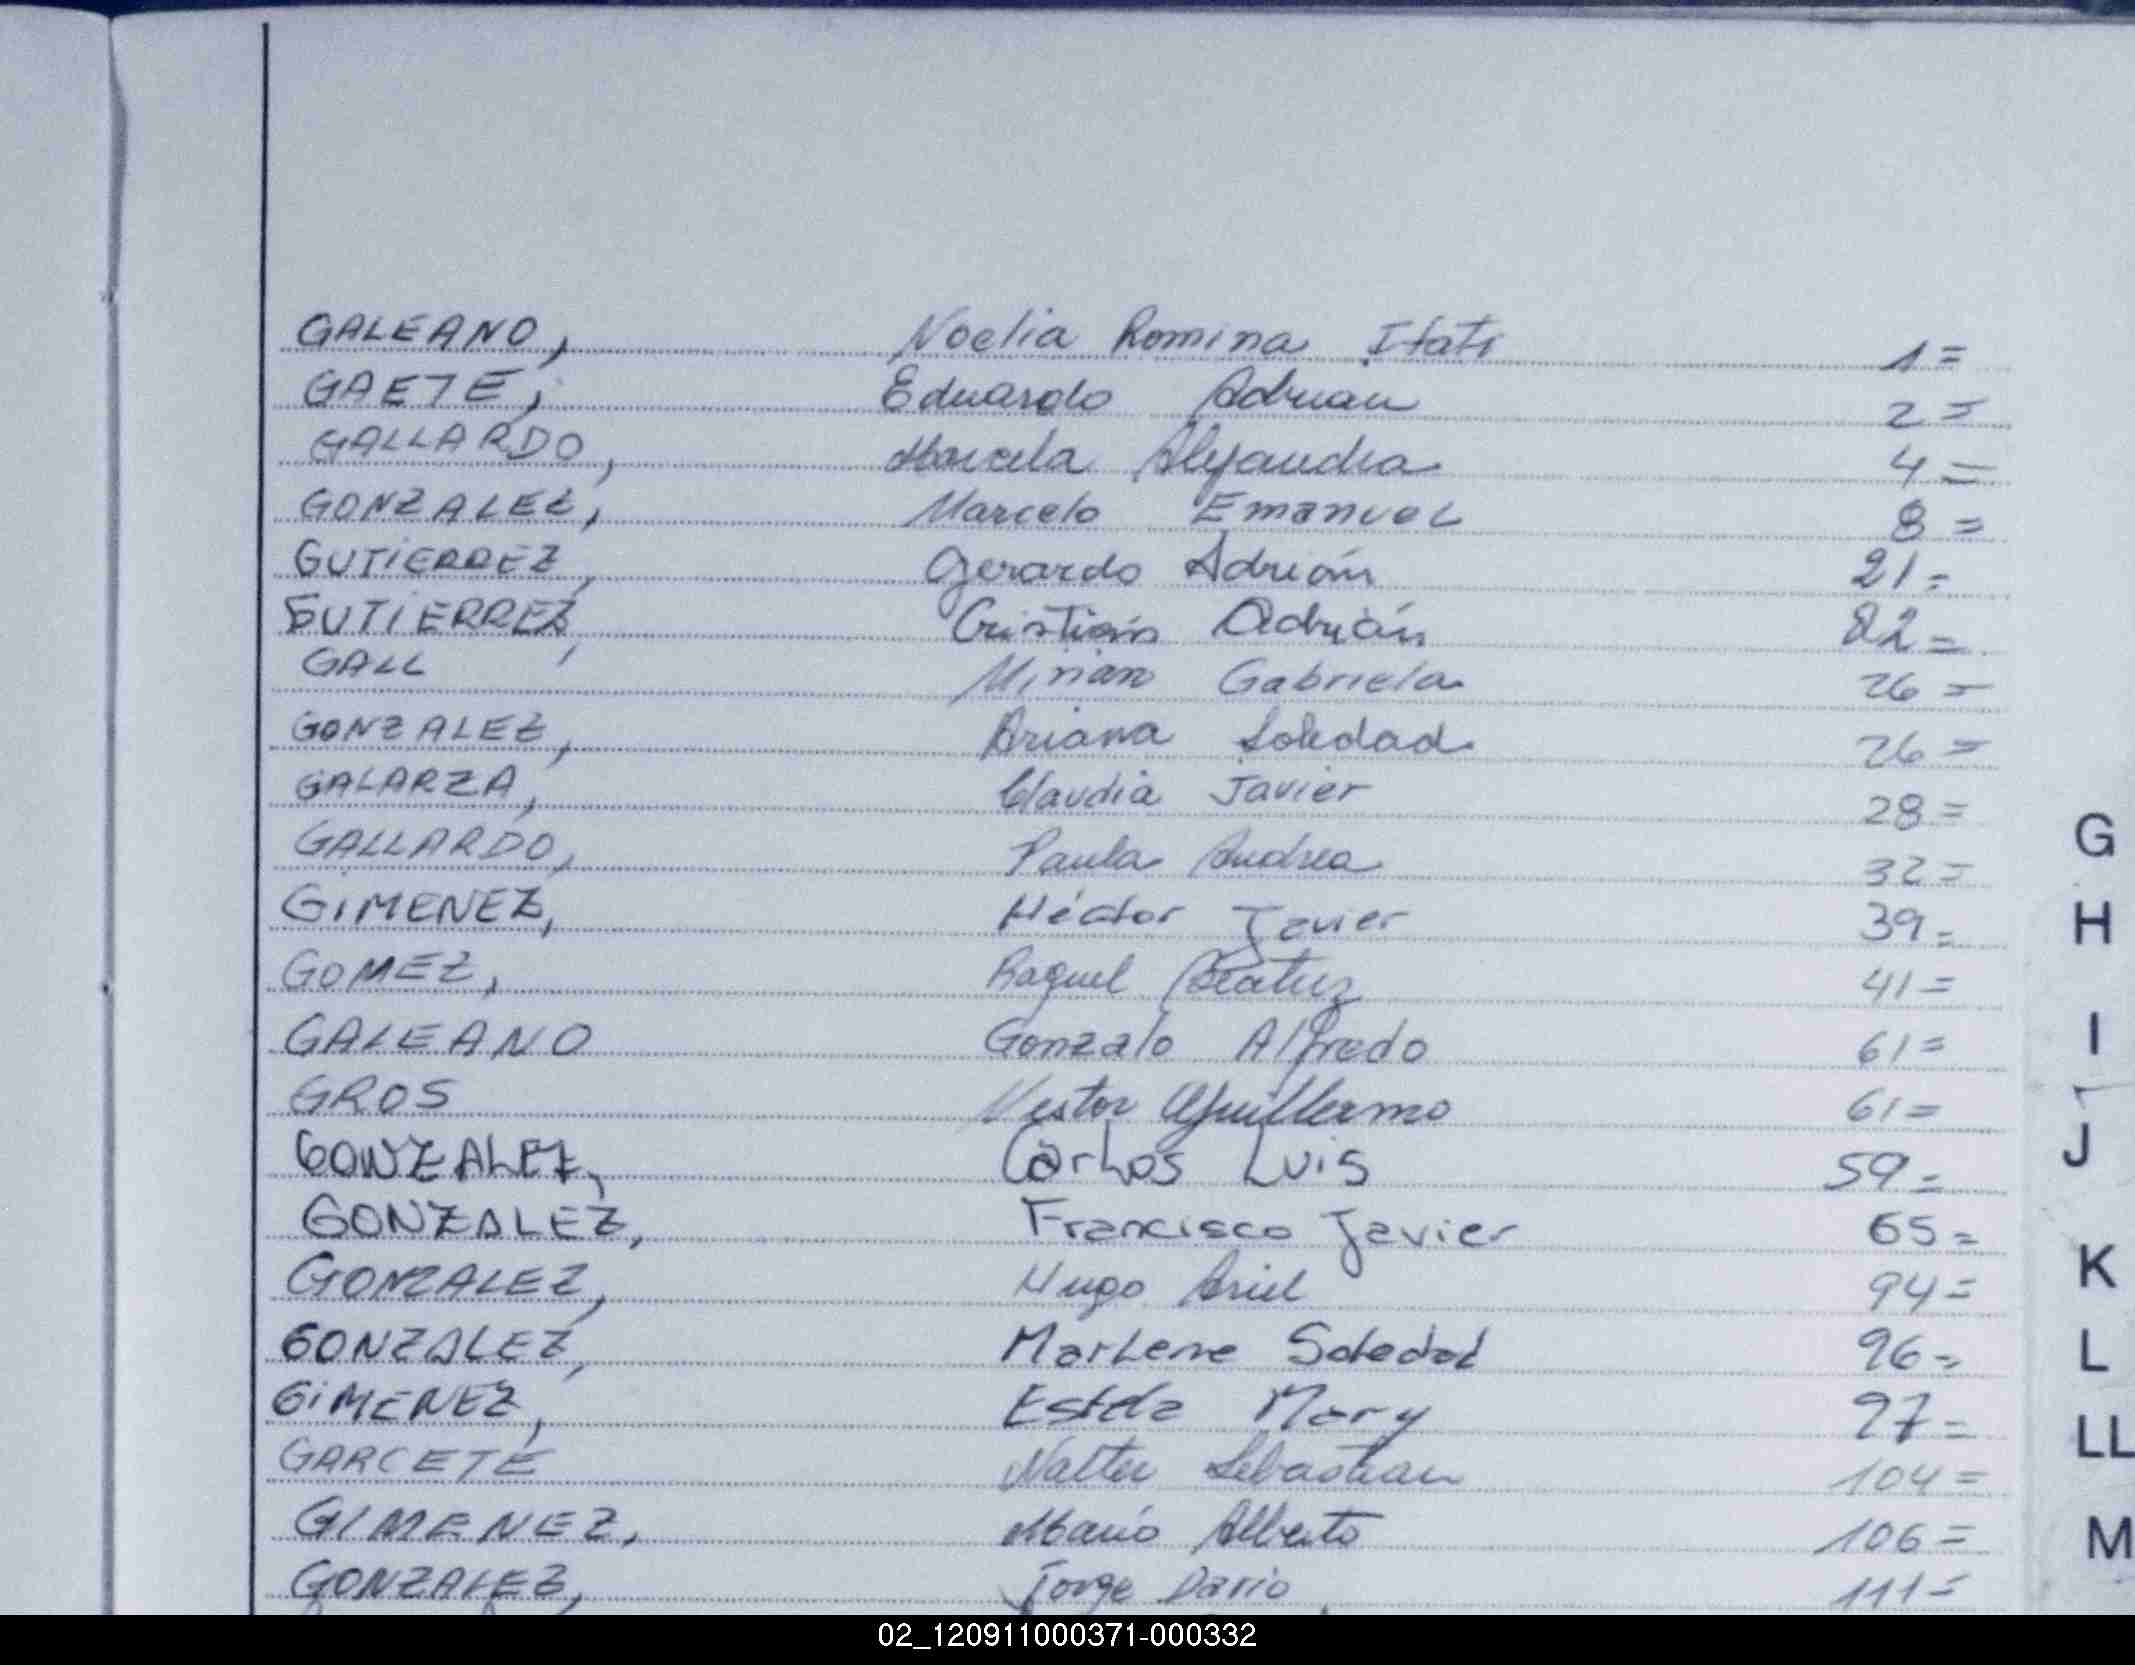 GALEANO, Noelia Romina Itati 1=
GAETE, Eduardo Adrian 2=
GALLARDO, Marcela Alejandra 4=
GONZALEZ, Marcelo Emanuel 8=
GUTIERREZ, Gerardo Adrián 21=
GUTIERREZ, Cristián Adrián 22=
GALL Mirian Gabriela 26=
GONZALEZ, Ariana Soledad 26=
GALARZA, Claudia Javier 28=
GALLARDO, Paula Andrea 32=
GIMENEZ, Héctor Javier 39=
GOMEZ, Raquel Beatriz 41=
GALEANO Gonzalo Alfredo 61=
GROS Nestor Guillermo 61=
GONZALEZ, Carlos Luis 59=
GONZALEZ, Francisco Javier 65=
GONZALEZ, Hugo Ariel 94=
GONZALEZ, Marlene Soledad 96=
GIMENEZ, Estela Mary 97=
GARCETE Walter Sebastian 104=
GIMENEZ, Mario Alberto 106=
GONZALEZ, Jorge Dario 111=
G
H
I
J
K
L
LL
M
02_120911000371-000332